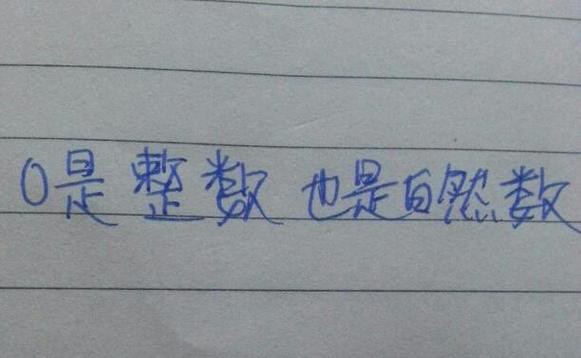 0是整数 也是自然数